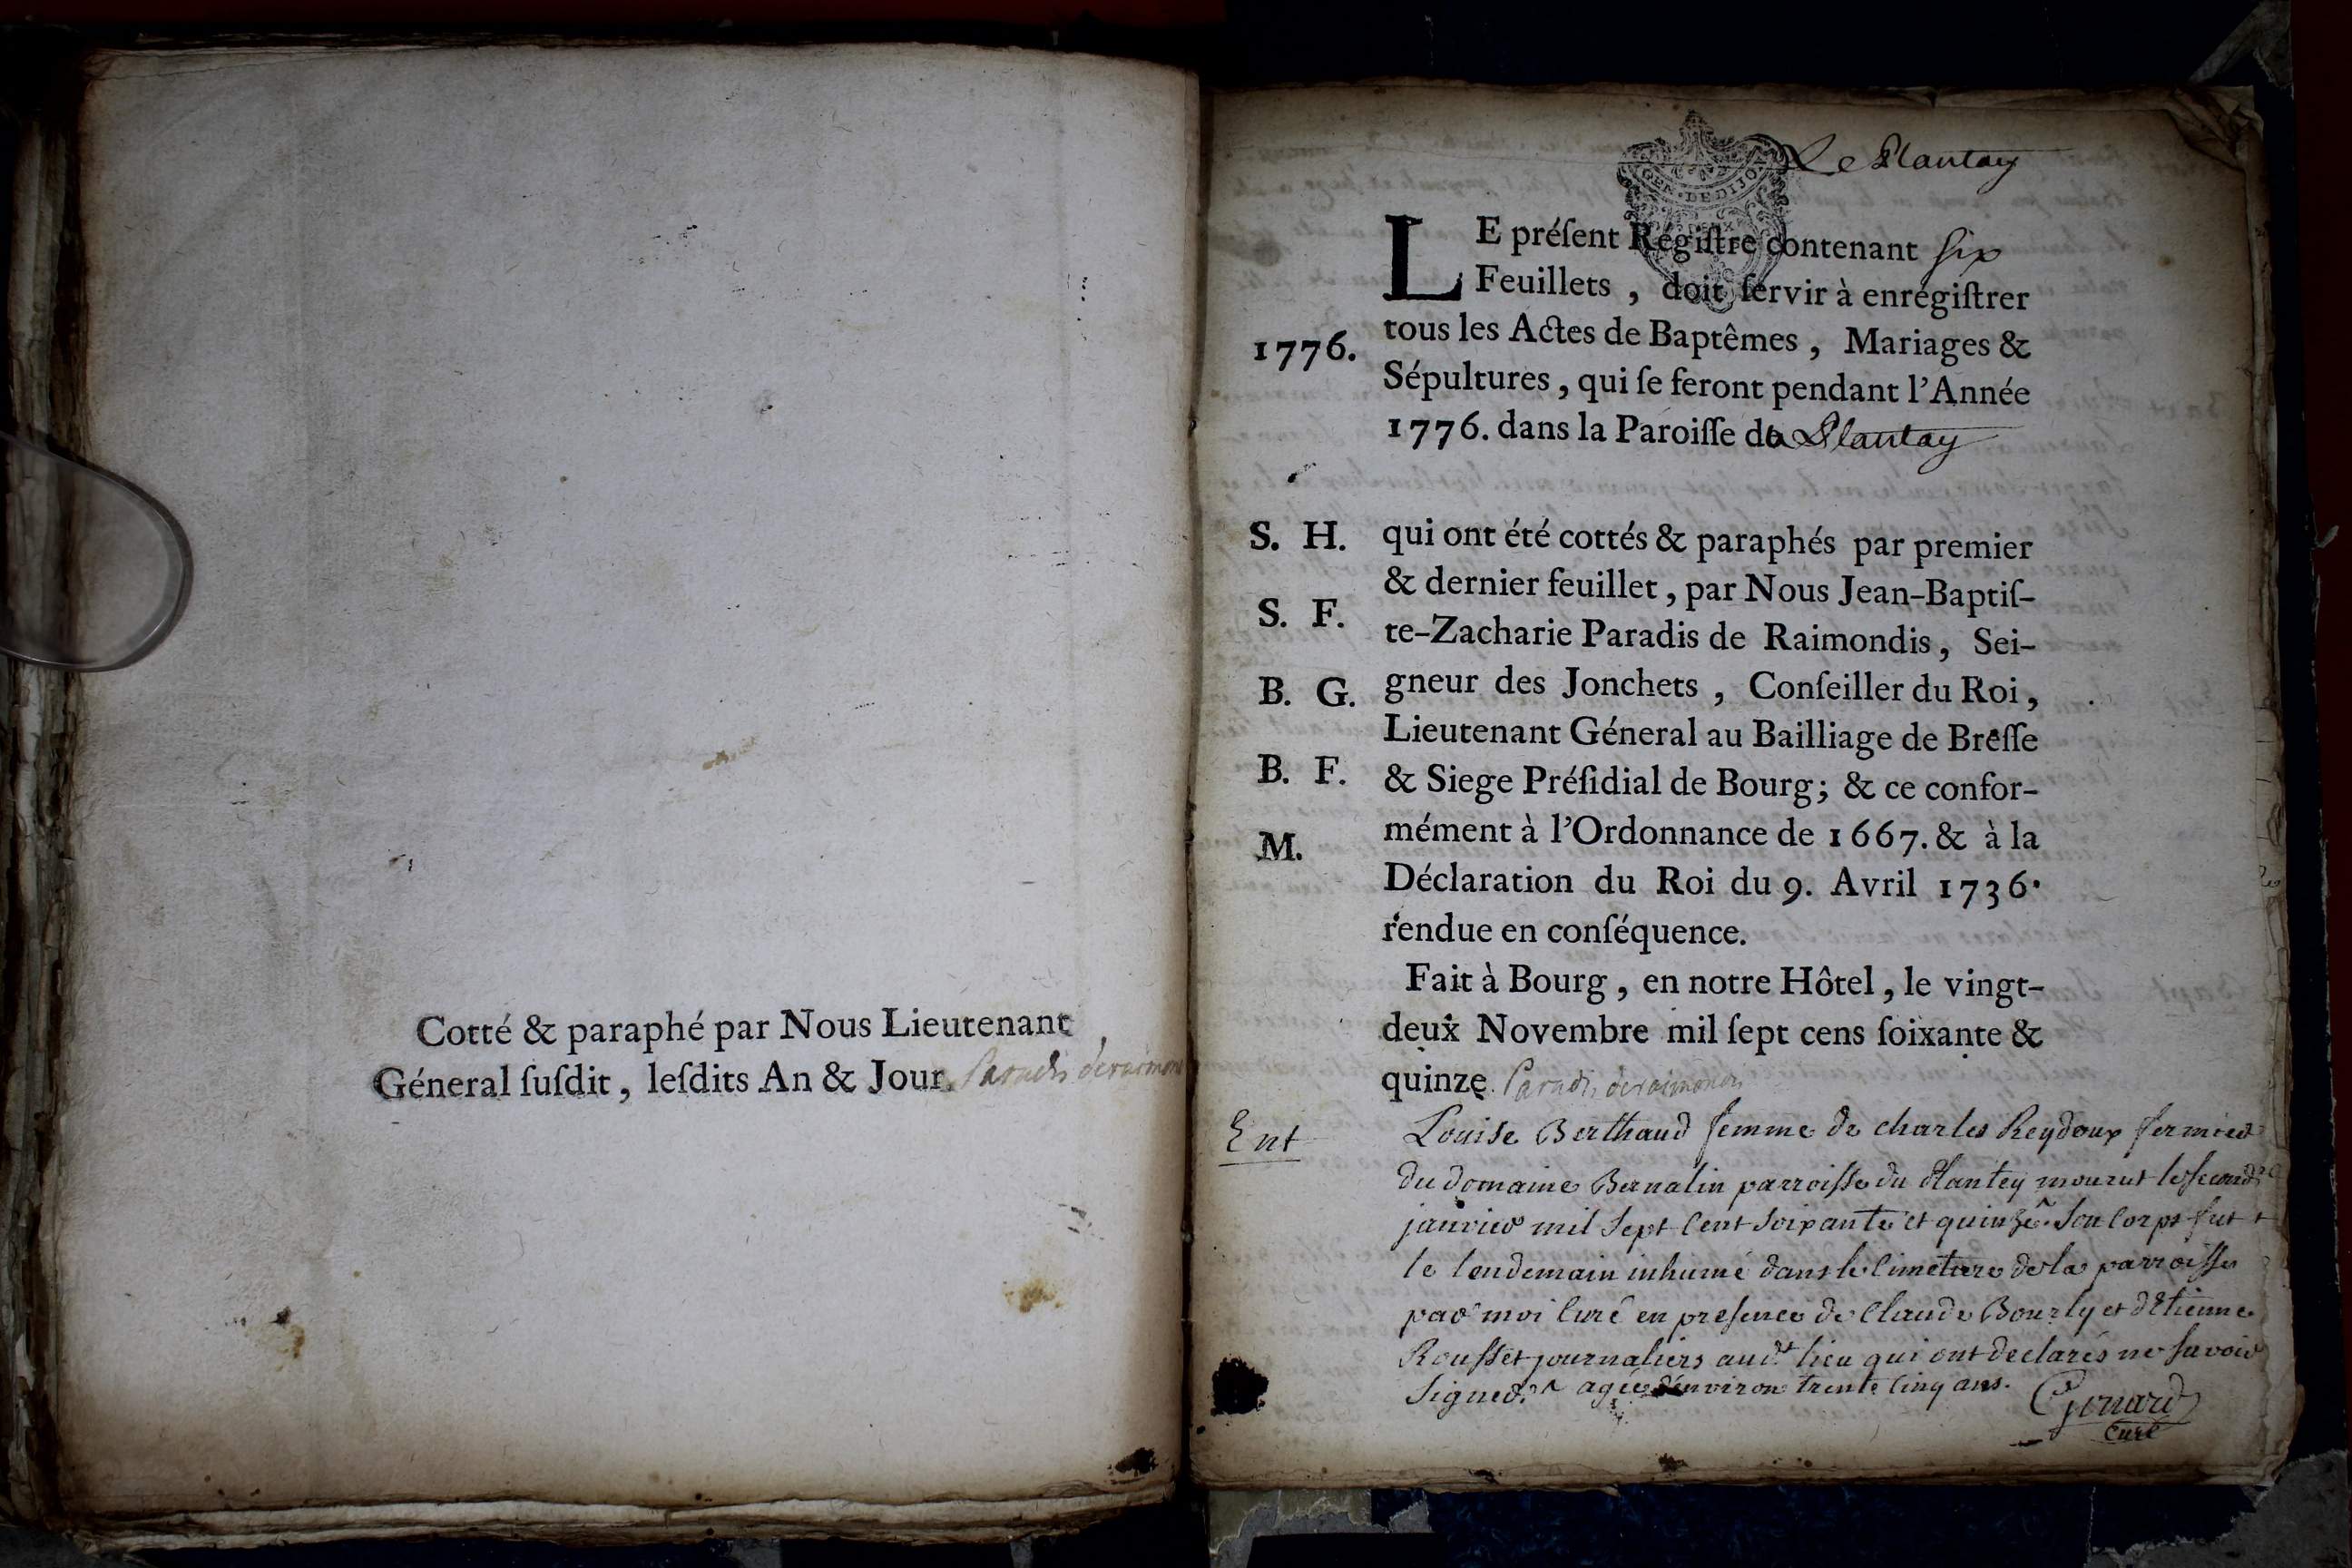 Cotté & paraphé par Nous Lieutenant
Géneral ſuſdit, leſdits An & Jour. Paradis deraimon
Le Plantay
GEN. DE DIJON
LE préſent Régiſtre contenant six
Feuillets, doit ſervir à enrégiſtrer
tous les Actes de Baptêmes, Mariages &
1776.
Sépultures, qui ſe feront pendant l'Année
1776. dans la Paroiſſe de Plantay
S. H.
qui ont été cottés & paraphés par premier
& dernier feuillet, par Nous Jean-Baptiſ-
S. F.
te-Zacharie Paradis de Raimondis, Sei-
B. G.
gneur des Jonchets, Conſeiller du Roi,
Lieutenant Géneral au Bailliage de Breſſe
B. F.
& Siege Préſidial de Bourg; & ce confor-
mément à l'Ordonnance de 1667. & à la
M.
Déclaration du Roi du 9. Avril 1736.
rendue en conſéquence.
Fait à Bourg, en notre Hôtel, le vingt-
deux Novembre mil ſept cens ſoixante &
quinze. Paradis deraimondis
Ent
Louise Berthaud femme de charles Reydoux fermier
du domaine Bernalin parroisse du Plantey mourut le second
janvier mil sept cent soixante et quinze. son corps fut
le lendemain inhumé dans le cimetiere de la parroisse
par moi curé en presence de Claude Bourly et d'Etienne
Rousset journaliers aud.t lieu qui ont declarés ne savoir
signer. ^ agée d'environ trente cinq ans.
Gonard
curé